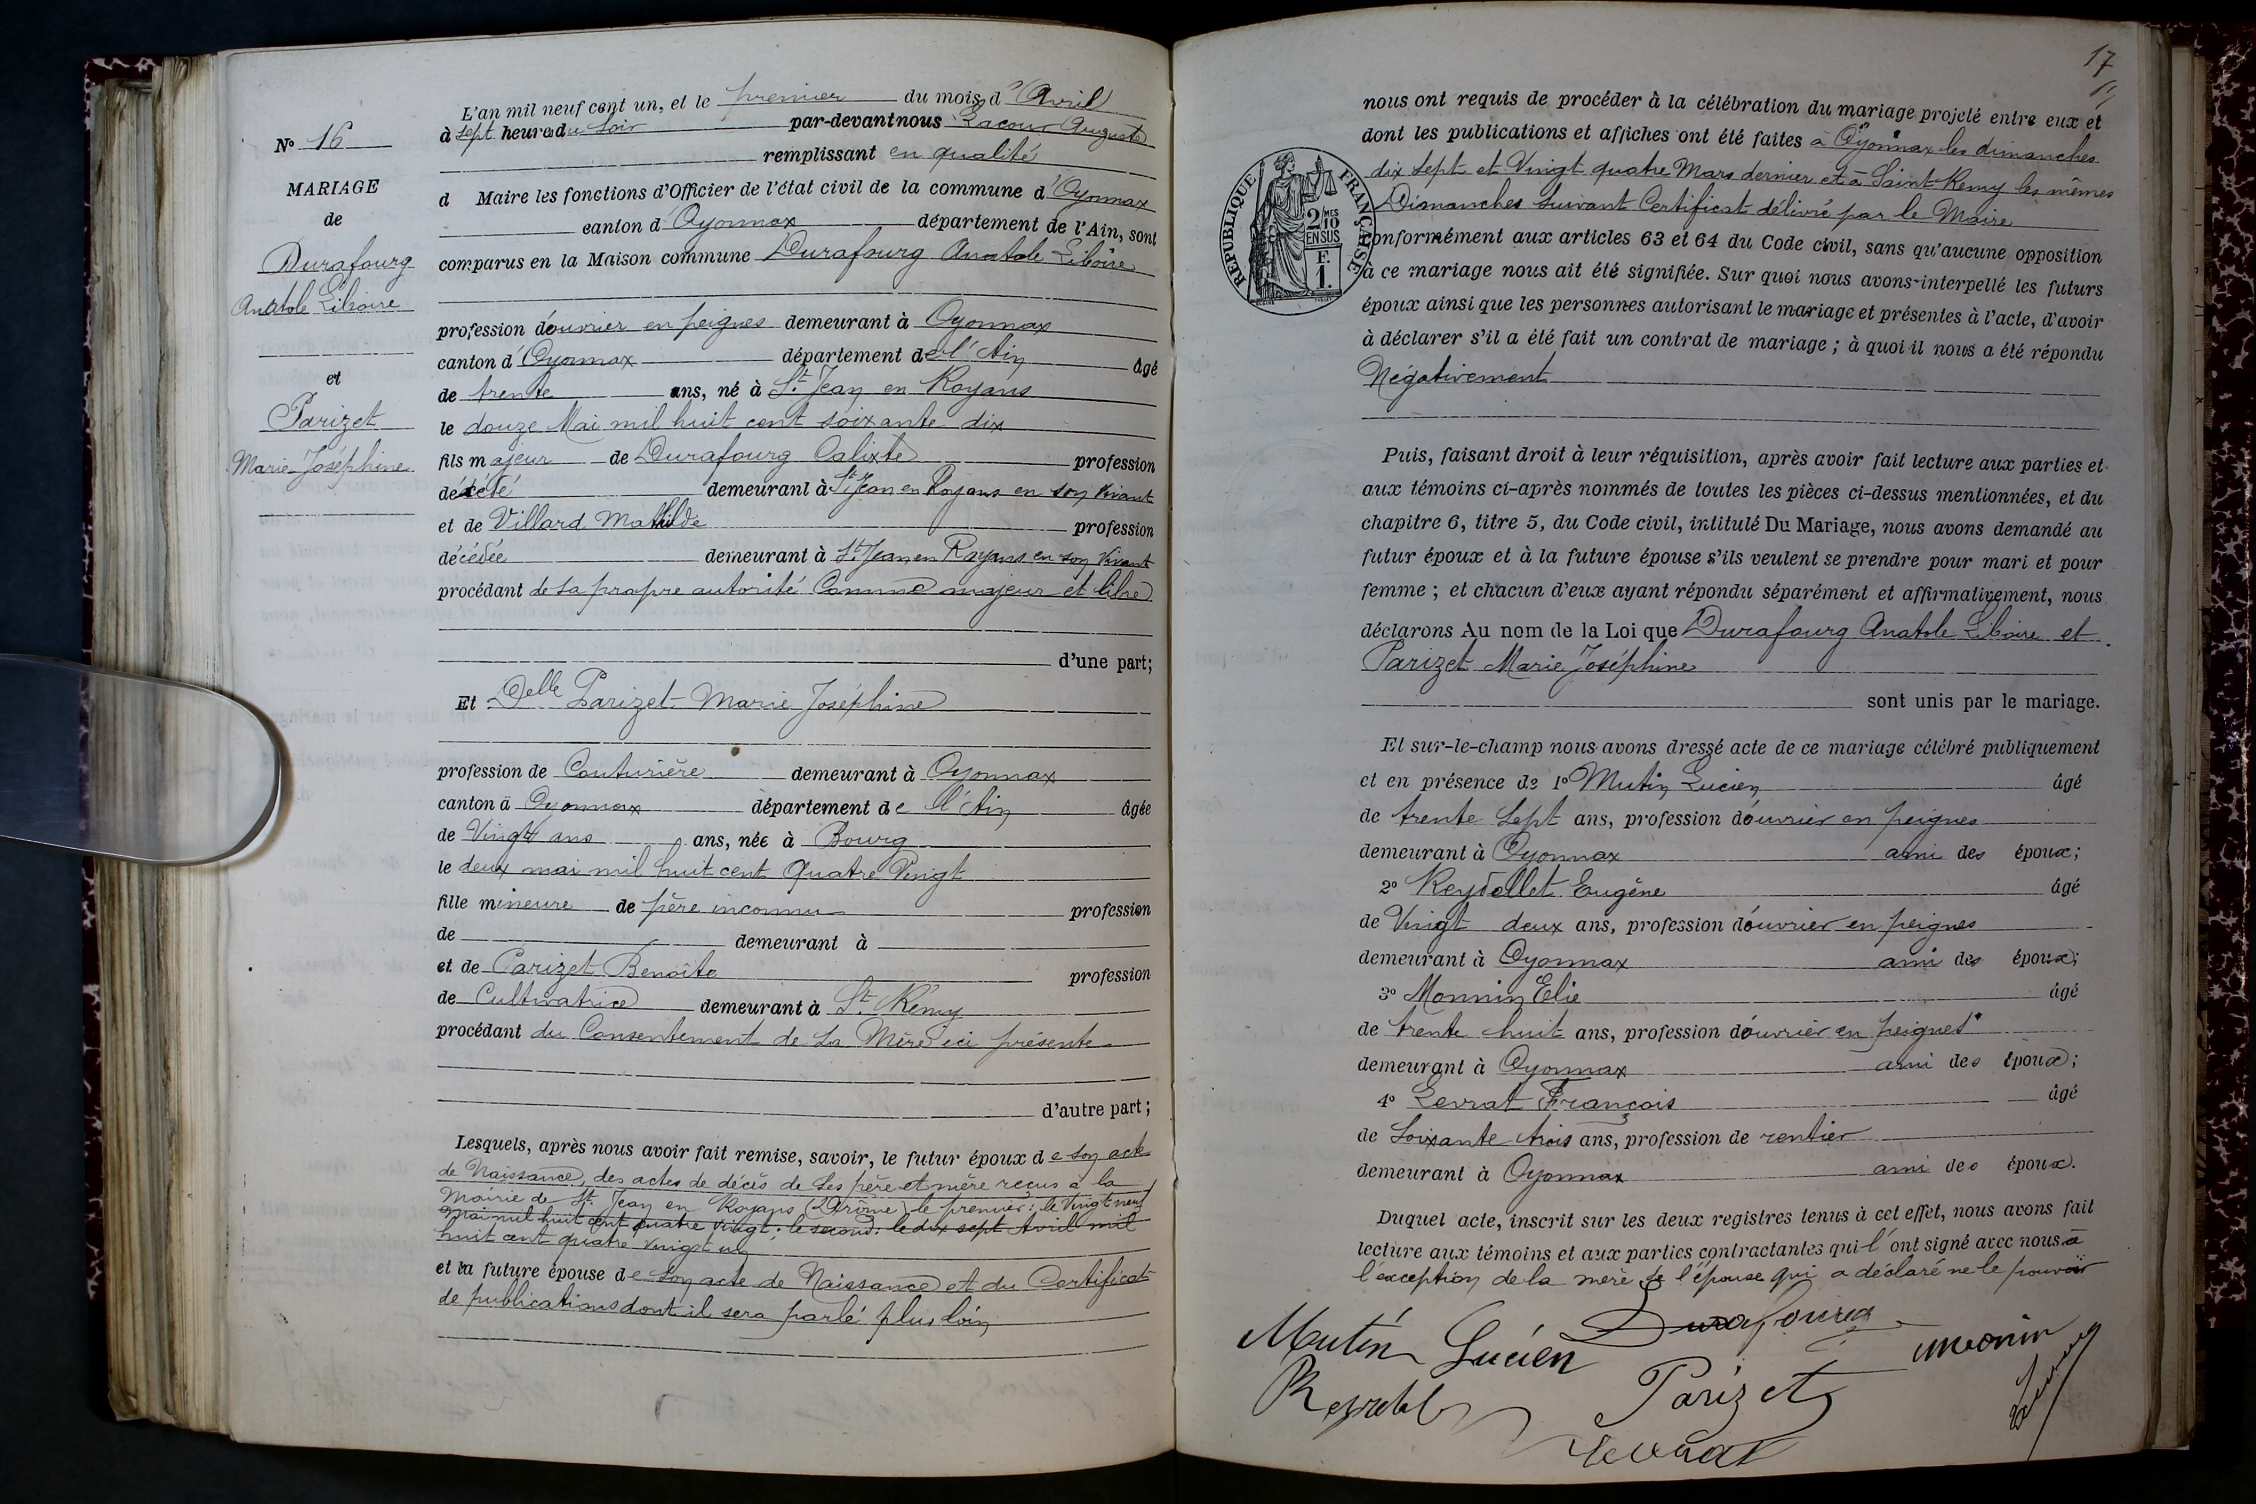 L'an mil neuf cent un, et le premier du mois d'Avril
à sept heure du soir par-devant nous Lacour Auguste
remplissant en qualité
d Maire les fonctions d'Officier de l'état civil de la commune d'Oyonnax
canton d'Oyonnax département de l'Ain, sont
comparus en la Maison commune Durafourg Anatole Liboire
profession d'ouvrier en peignes demeurant à Oyonnax
canton d'Oyonnax département de l'Ain âgé
de trente ans, né à St. Jean en Royans
le douze Mai mil huit cent soixante dix
fils majeur de Durafourg Calixte profession
décédé demeurant à St Jean en Royans en son vivant
et de Villard Mathilde profession
décédée demeurant à St. Jean en Royans en son vivant
procédant de sa propre autorité Comme majeur et libre
d'une part;
Et Delle Parizet Marie Joséphine
profession de Couturière demeurant à Oyonnax
canton d Oyonnax département de l'Ain âgée
de Vingt ans ans, née à Bourg
le deux mai mil huit cent Quatre Vingt
fille mineure de père inconnu profession
de demeurant à
et de Parizet Benoîte profession
de Cultivatrice demeurant à St. Rémy
procédant du Consentement de sa Mère ici présente
d'autre part;
Lesquels, après nous avoir fait remise, savoir, le futur époux de son acte
de Naissance, des actes de décès de ses père et mère reçus à la
Mairie de St. Jean en Royans (Drôme) le premier: le Vingt neuf
Mai mil huit cent quatre vingt; le second: le dix sept Avril mil
huit cent quatre vingt un
et la future épouse de son acte de Naissance et du Certificat
de publications dont il sera parlé plus loin
No 16
MARIAGE
de
Durafourg
Anatole Liboire
et
Parizet
Marie Joséphine
17
nous ont requis de procéder à la célébration du mariage projeté entre eux et
dont les publications et affiches ont été faites à Oyonnax les dimanches
dix sept et Vingt quatre Mars dernier et à Saint Remy les mêmes
Dimanches suivant Certificat délivré par le Maire
conformément aux articles 63 et 64 du Code civil, sans qu'aucune opposition
à ce mariage nous ait été signifiée. Sur quoi nous avons interpellé les futurs
époux ainsi que les personnes autorisant le mariage et présentes à l'acte, d'avoir
à déclarer s'il a été fait un contrat de mariage; à quoi il nous a été répondu
Négativement
RÉPUBLIQUE FRANÇAISE
2/10 MES
EN SUS
F.
1.
Puis, faisant droit à leur réquisition, après avoir fait lecture aux parties et
aux témoins ci-après nommés de toutes les pièces ci-dessus mentionnées, et du
chapitre 6, titre 5, du Code civil, intitulé Du Mariage, nous avons demandé au
futur époux et à la future épouse s'ils veulent se prendre pour mari et pour
femme; et chacun d'eux ayant répondu séparément et affirmativement, nous
déclarons Au nom de la Loi que Durafourg Anatole Liboire et
Parizet Marie Joséphine
sont unis par le mariage.
Et sur-le-champ nous avons dressé acte de ce mariage célébré publiquement
et en présence de 1o Mutin Lucien âgé
de trente Sept ans, profession d'ouvrier en peignes
demeurant à Oyonnax ami des époux;
2o Reydellet Eugène âgé
de Vingt deux ans, profession d'ouvrier en peignes
demeurant à Oyonnax ami des époux;
3o Monnin Elie âgé
de trente huit ans, profession d'ouvrier en peignes
demeurant à Oyonnax ami des époux;
4o Levrat François âgé
de Soixante trois ans, profession de rentier
demeurant à Oyonnax ami des époux.
Duquel acte, inscrit sur les deux registres tenus à cet effet, nous avons fait
lecture aux témoins et aux parties contractantes qui l'ont signé avec nous à
l'exception de la mère de l'épouse qui a déclaré ne le pouvoir
Durafourg
Mutin Lucien
Monin
Parizet
Levrat